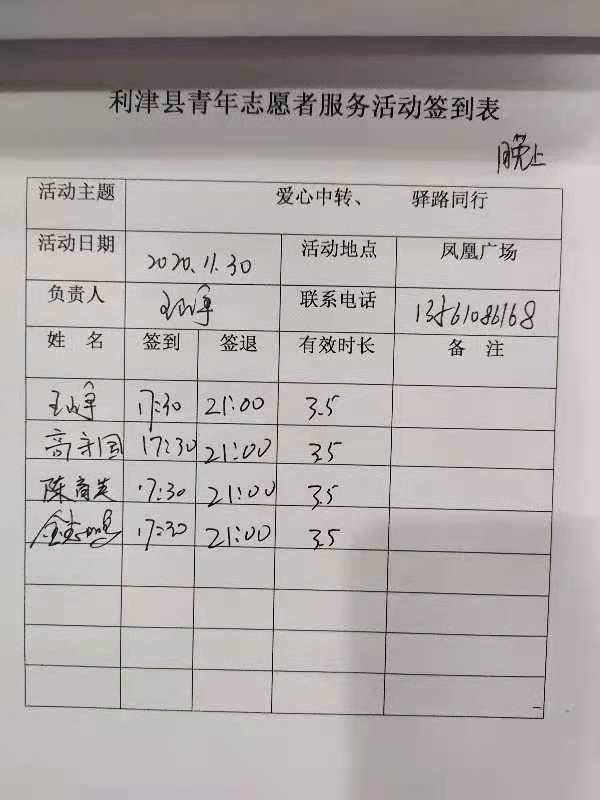 利津县青年志愿者服务活动签到表
晚上
活动主题 爱心中转、 驿路同行
活动日期 2020.11.30 活动地点 凤凰广场
负责人 联系电话 13561086168
姓名 签到 签退 有效时长 备注
17:30 21:00 3.5
高守国 17:30 21:00 3.5
17:30 21:00 3.5
17:30 21:00 3.5